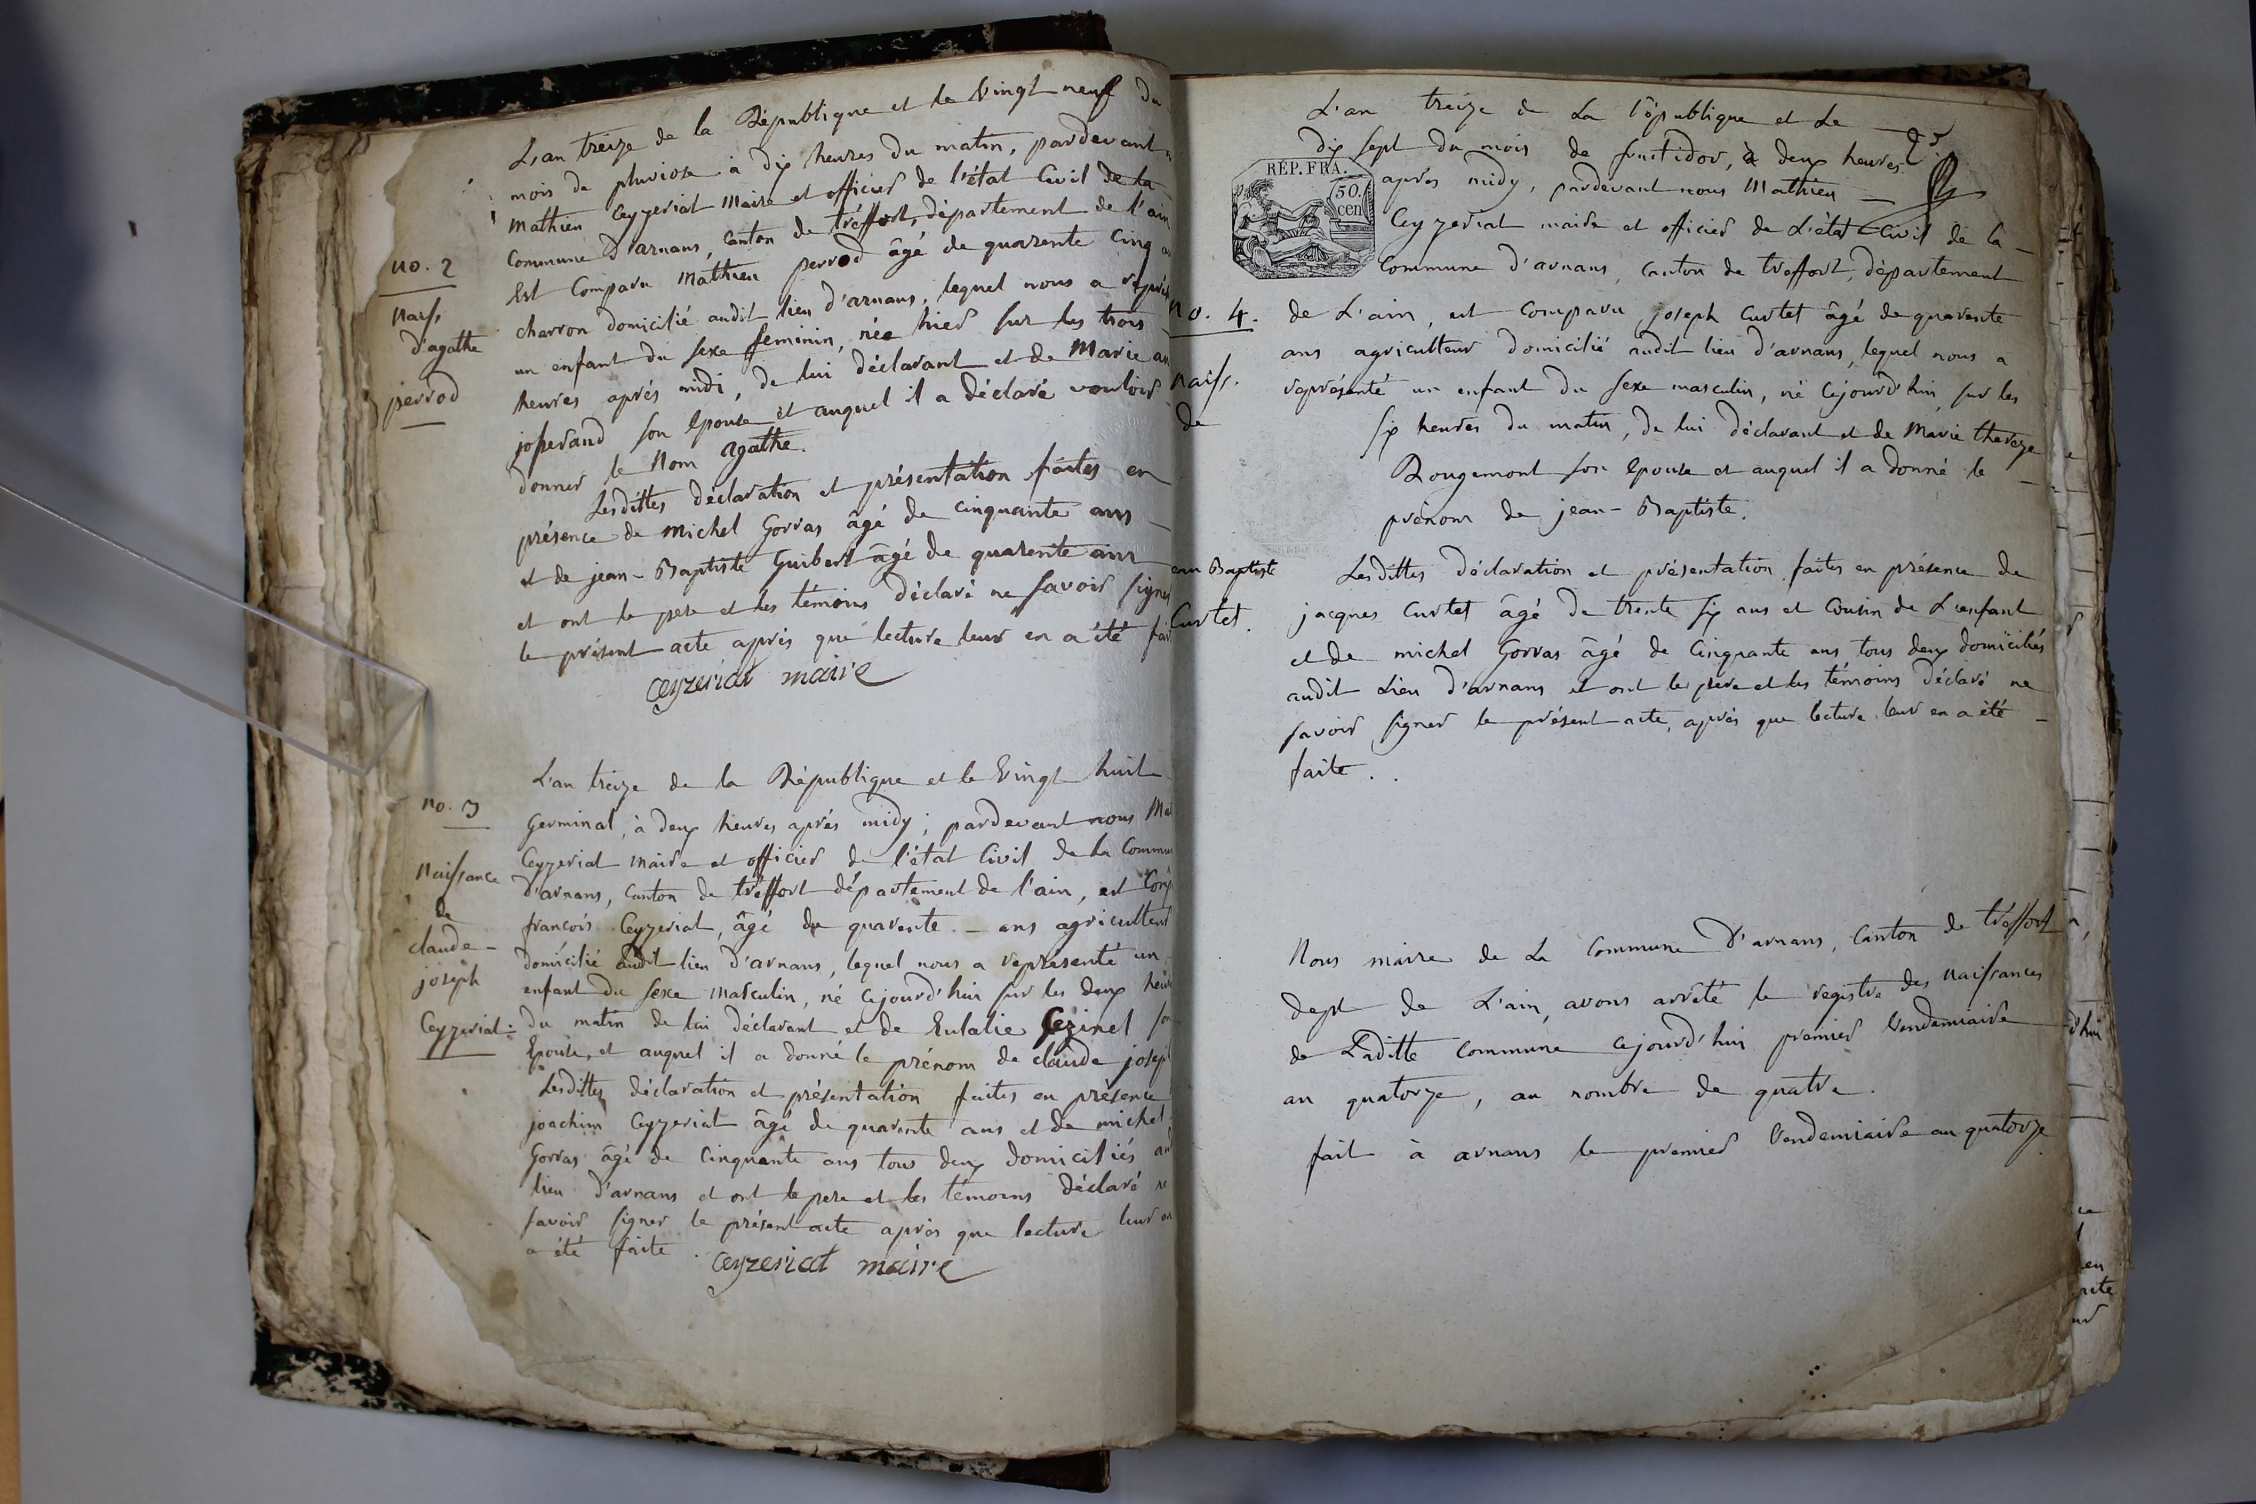 L'an treize de la République et le Vingt neuf du
mois de pluviose à dix heures du matin, pardevant
Mathieu Ceyzeriat Maire et officier de l'état Civil de la
Commune D'arnans, Canton de tréffort, département de l'ain
Est Comparu Mathieu perrod âgé de quarente Cinq
charron domicilié audit lieu d'arnans, lequel nous a
un enfant du sexe feminin, née hier sur les trois
heures après midi, de lui déclarant et de Marie
josserand son Epouse et auquel il a déclaré vouloir
donner le Nom Agathe.
Lesdittes déclaration et présentation faites en
présence de Michel Gorras âgé de Cinquante ans
et de jean-Baptiste Guibert âgé de quarente ans
et ont le pere et les témoins déclaré ne savoir signer
le présent acte après que lecture leur en a été
Ceyzeriat maire
no. 2
Naiss.
d'agathe
perrod
L'an treize de la République et le Vingt huit
Germinal, à deux heures après midy; pardevant nous
Ceyzeriat Maire et officier de l'état Civil de la
d'arnans, Canton de tréffort département de l'ain, est
francois Ceyzeriat, âgé de quarente - ans agriculteur
domicilié audit lieu d'arnans, lequel nous a représenté un
enfant du sexe masculin, né cejourd'hui sur les deux
du matin de lui déclarant et de Eulalie
Epouse, et auquel il a donné le prénom de claude joseph
Lesdittes déclaration et présentation faites en présence
joachim Ceyzeriat âgé de quarente ans et de michel
Gorras âgé de Cinquante ans tous deux domiciliés
lieu d'arnans et ont le pere et les témoins déclaré
savoir signer le présent acte après que lecture leur en
a été faite.
Ceyzeriat maire
no. 3
Naissance
de
claude-
joseph
Ceyzeriat.
L'an treize de La république et Le
dix sept du mois de fructidor, à deux heures
après midy, pardevant nous Mathieu
Ceyzeriat maire et officier de L'état Civil de la
Commune d'arnans, canton de treffort, département
de L'ain, est comparu joseph Curtet âgé de quarente
ans agriculteur domicilié audit lieu d'arnans, lequel nous a
représenté un enfant du sexe masculin, né cejourd'hui, sur les
six heures du matin, de lui déclarant et de Marie thereze
Rougemont son Epouse et auquel il a donné le
prénom de jean-Baptiste.
Lesdittes déclaration et présentation faites en présence de
jacques Curtet âgé de trente six ans et cousin de L'enfant
et de michel Gorras âgé de Cinquante ans tous deux domiciliés
audit Lieu d'arnans et ont le pere et les témoins déclaré ne
savoir signer le présent acte, après que lecture leur en a été
faite.
REP. FRA.
50.
cen
No. 4.
Naiss.
de
Baptiste
Curtet.
Nous maire de La Commune D'arnans, Canton de tréffort
dept de L'ain, avons arrêté le registre des Naissances
de Laditte Commune cejourd'hui premier Vendemiaire
an quatorze, au nombre de quatre.
fait à arnans le premier Vendemiaire an quatorze